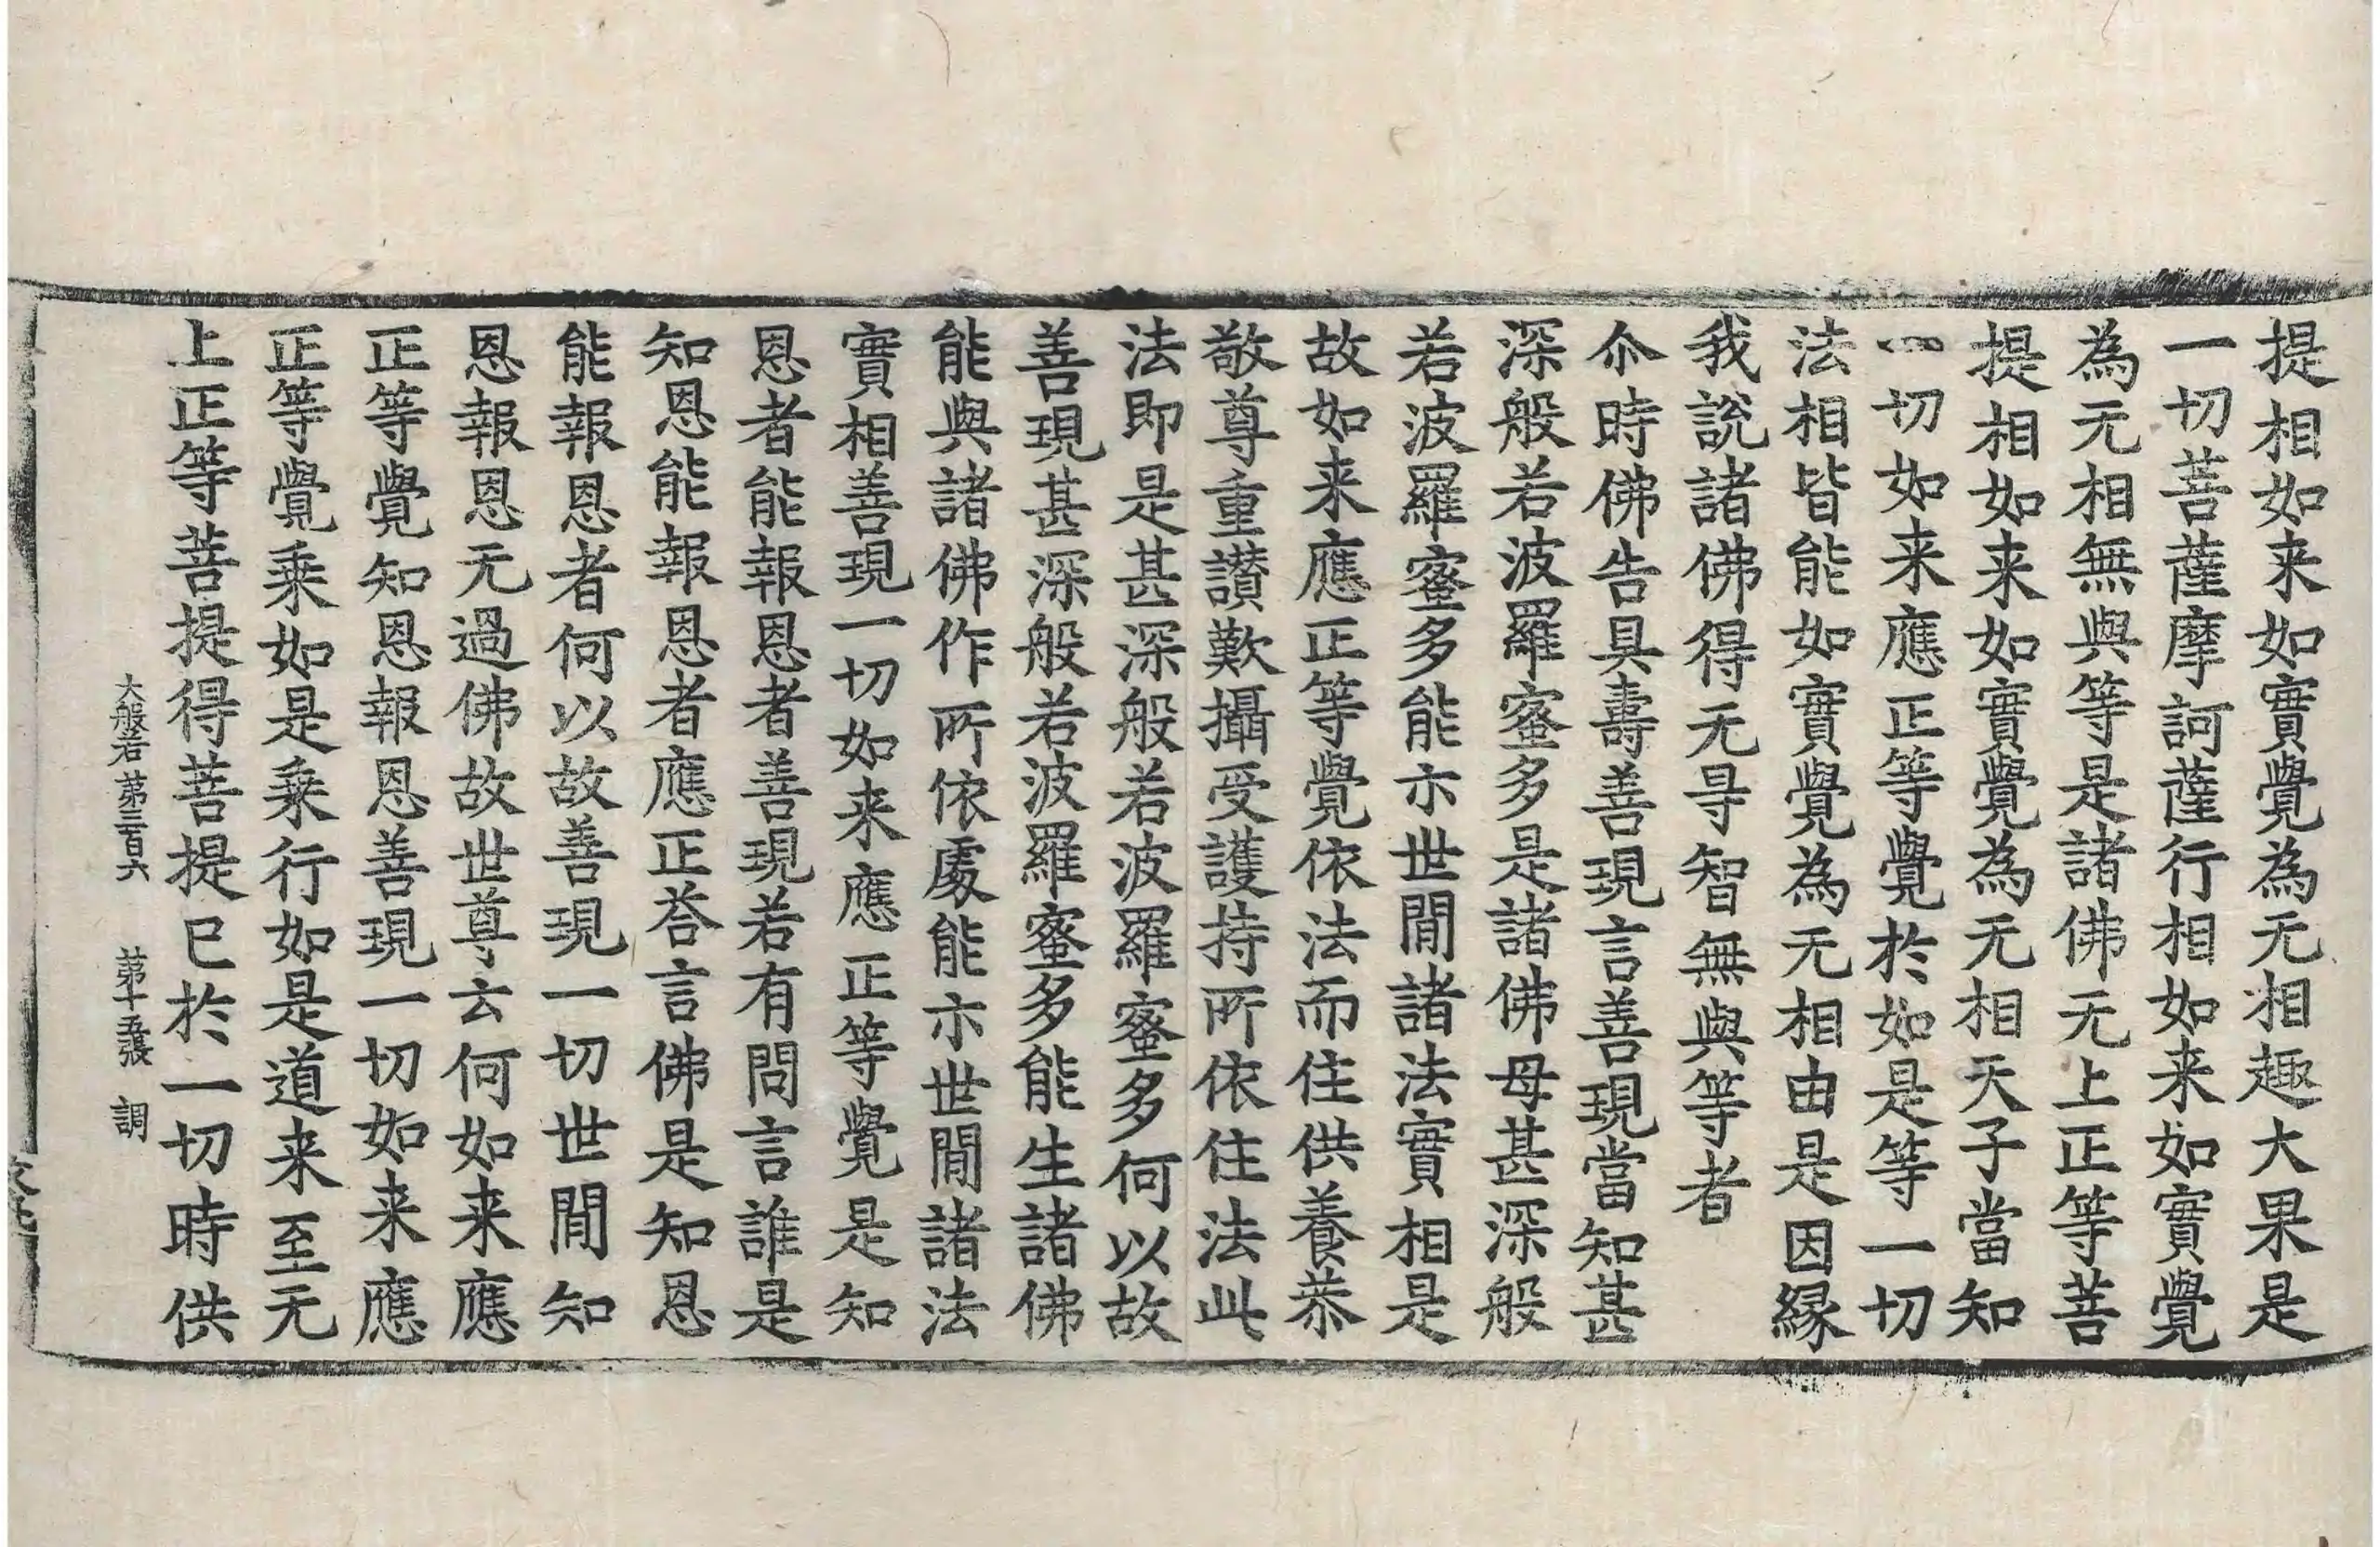 提相如来如實覺為无相趣大果是
一切菩薩摩訶薩行相如来如實覺
為无相無與等是諸佛无上正等菩
提相如来如實覺為无相天子當知
一切如来應正等覺於如是等一切
法相皆能如實覺為无相由是因縁
我說諸佛得无㝵智無與等者
尒時佛告具壽善現言善現當知甚
深般若波羅蜜多是諸佛母甚深般
若波羅蜜多能示世間諸法實相是
故如来應正等覺依法而住供養恭
敬尊重讚歎攝受護持所依住法此
法即是甚深般若波羅蜜多何以故
善現甚深般若波羅蜜多能生諸佛
能與諸佛作所依處能示世間諸法
實相善現一切如来應正等覺是知
恩者能報恩者善現若有問言誰是
知恩能報恩者應正荅言佛是知恩
能報恩者何以故善現一切世間知
恩報恩无過佛故世尊云何如来應
正等覺知恩報恩善現一切如来應
正等覺乘如是乘行如是道来至无
上正等菩提得菩提已於一切時供
大般若第三百六 第十五張 調